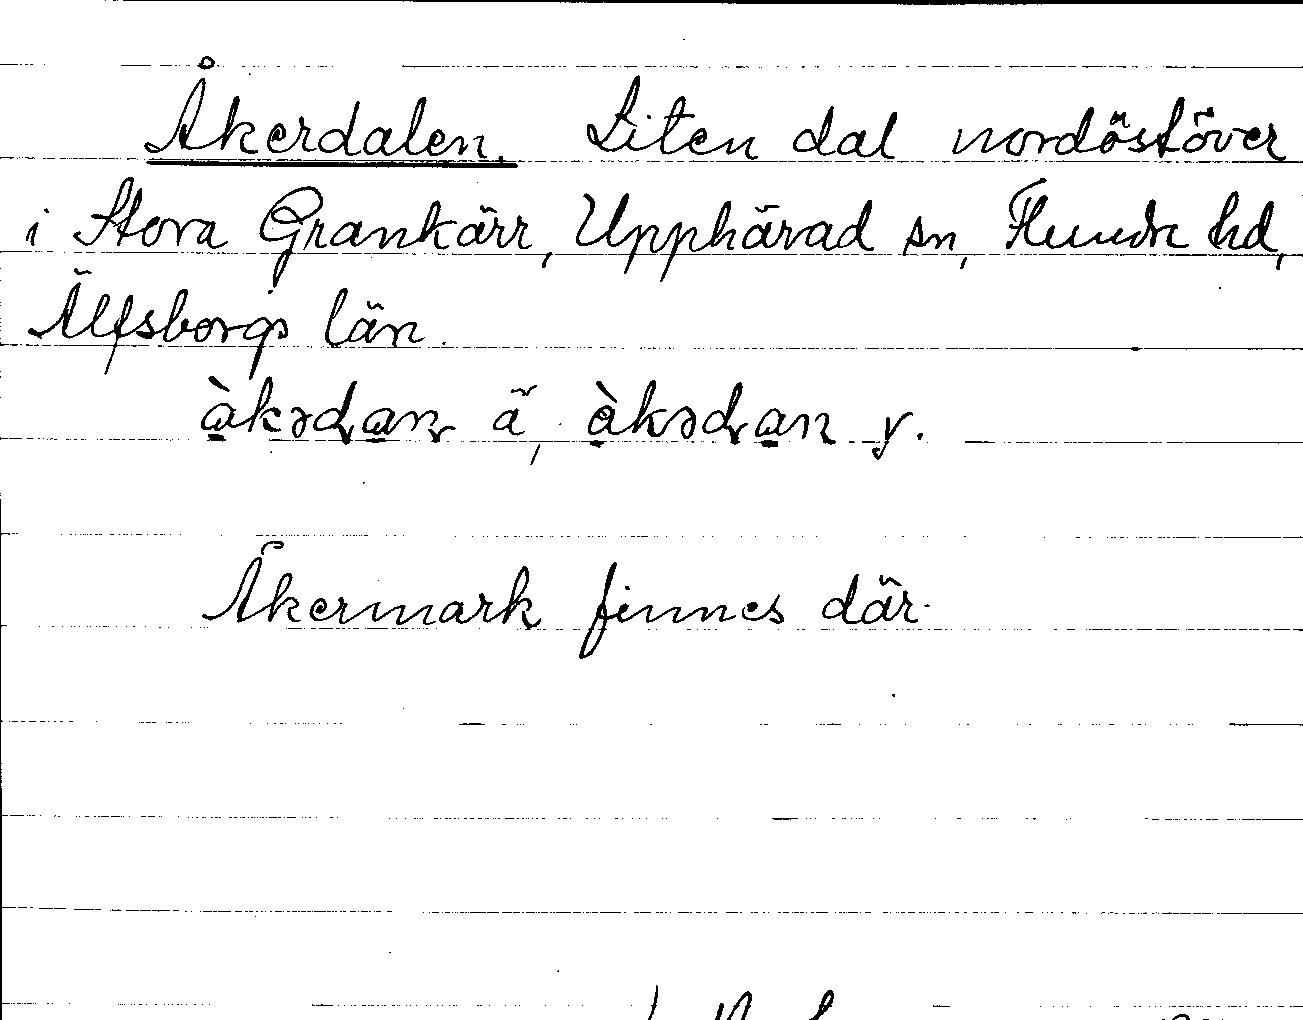 Åkerdalen. Liten dal nordöstöver
i Stora Grankärr, Upphärad sn, Flundre hd,
Älfsborgs län.
àkədan ä, àkədan y.
Åkermark finnes där.